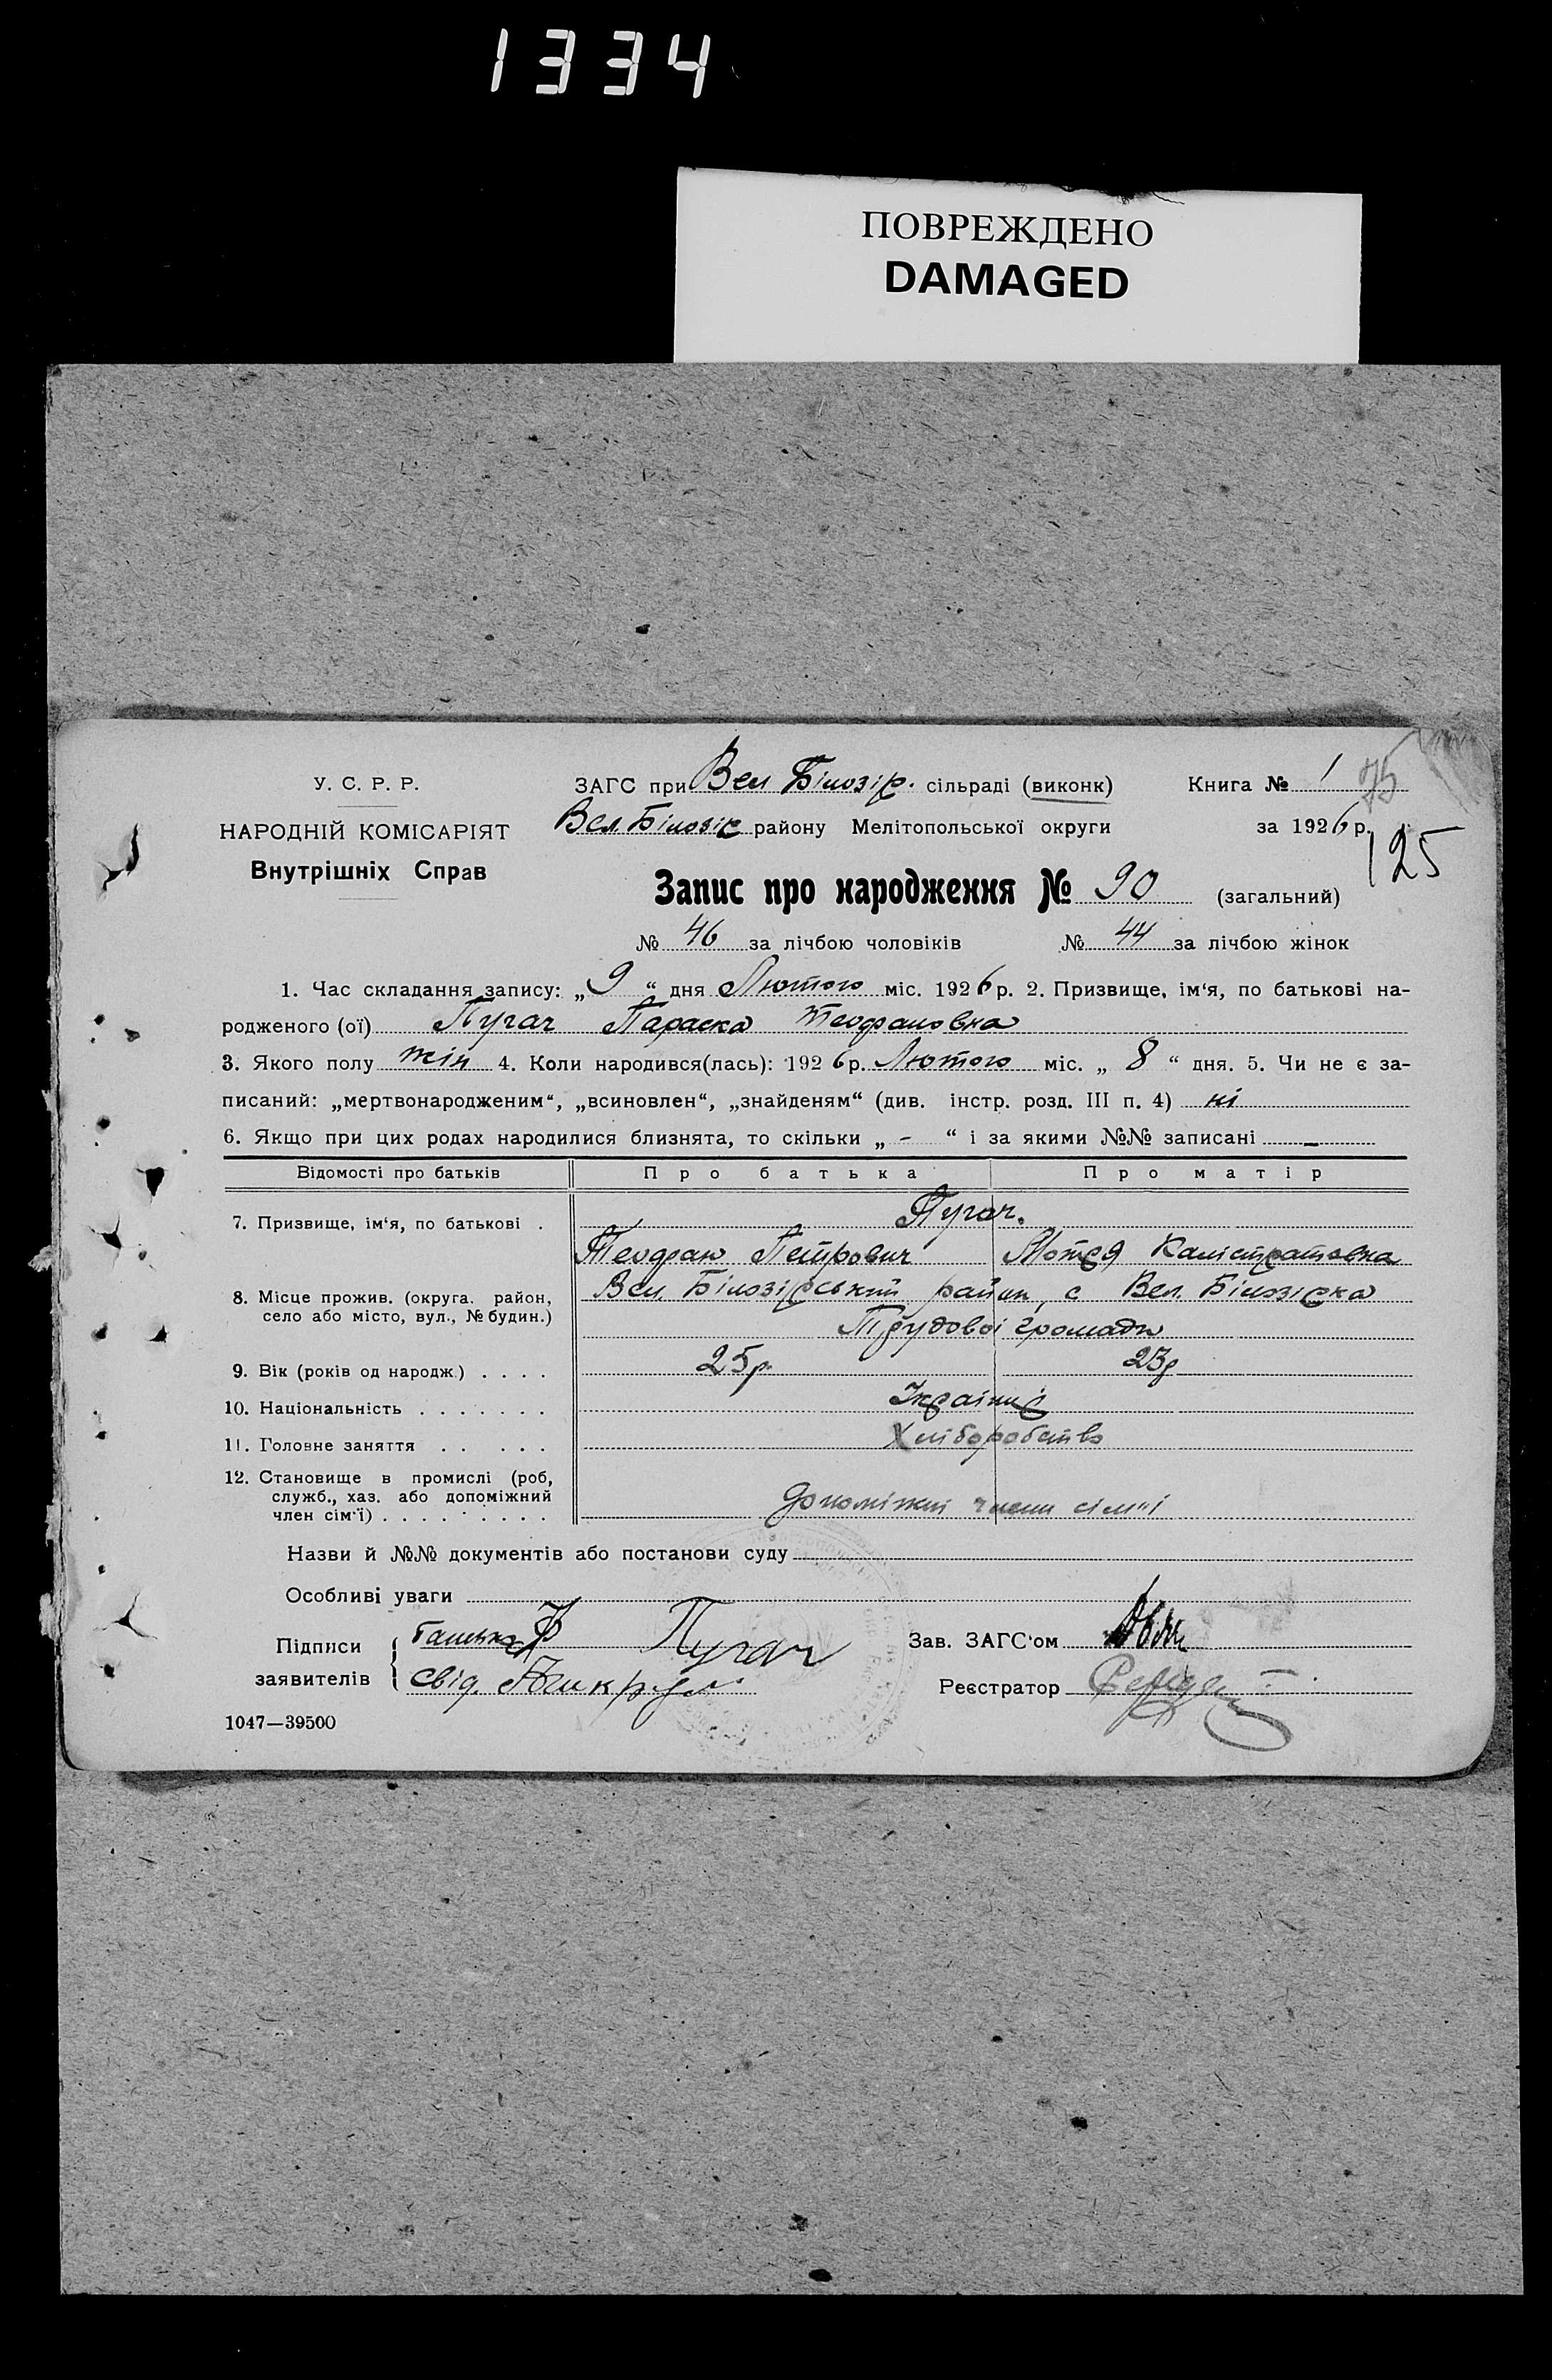 1334
ПОВРЕЖДЕНО
DAMAGED
У. С. Р. Р.
НАРОДНІЙ КОМІСАРІЯТ
Внутрішніх Справ
ЗАГС при Вел Білозір. сільраді (виконк) Книга № 1 75
Вел. Білозір району Мелітопольської округи за 1926 р.
125
Запис про народження № 90 (загальний)
№ 46 за лічбою чоловіків № 44 за лічбою жінок
1. Час складання запису: „9“ дня Лютого міс. 1926 р. 2. Призвище, ім'я, по батькові на-
родженого (ої) Пугач Параска Теофановна
3. Якого полу жін 4. Коли народився(лась): 1926 р. Лютого міс. „ 8 “ дня. 5. Чи не є за-
писаний: „мертвонародженим“, „всиновлен“, „знайденям“ (див. інстр. розд. III п. 4) ні
6. Якщо при цих родах народилися близнята, то скільки „ - “ і за якими №№ записані –
Відомості про батьків Про батька Про матір
7. Призвище, ім'я, по батькові . Пугач.
Теофан Петрович Мотря Калістратовна
8. Місце прожив. (округа. район, село або місто, вул., № будин.) Вел. Білозірський район, с Вел. Білозірка
Трудової громади
9. Вік (років од народж.) . . . . 25 р. 23 р
10. Національність . . . . . . . Українці
11. Головне заняття . . . . . Хліборобство
12. Становище в промислі (роб, служб., хаз. або допоміжний член сім'ї) . . . . . . . . . допоміжні члени сім"ї
Назви й №№ документів або постанови суду
Особливі уваги
Підписи заявителів { батька Ф Пугач
свід.
Зав. ЗАГС'ом
Реєстратор
1047—39500